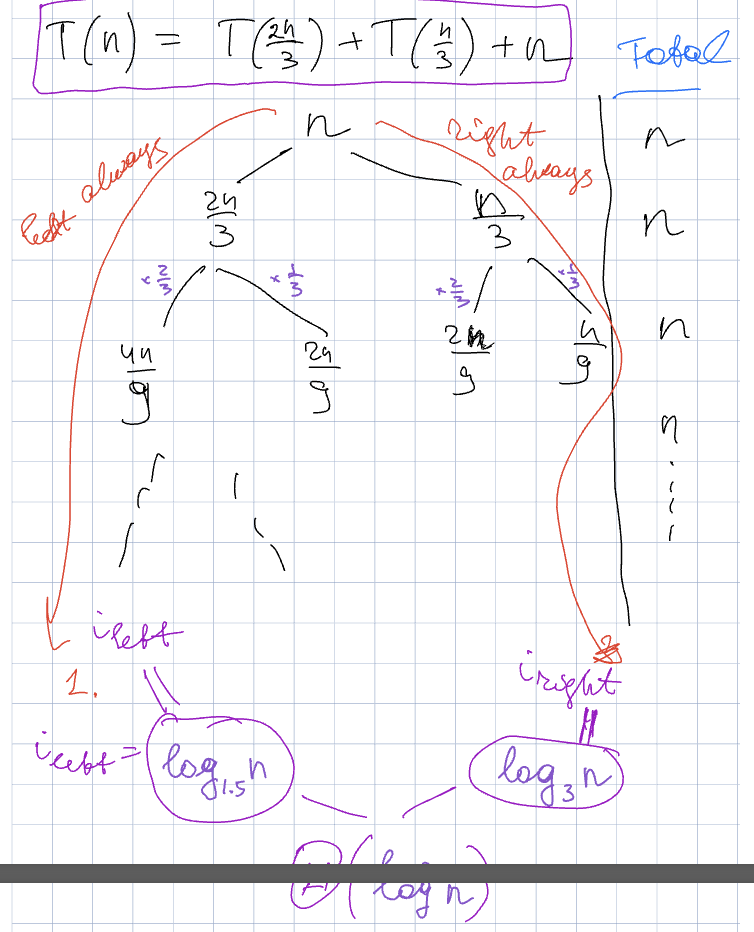 T(n) = T(2n/3) + T(n/3) + n
Total
n
right always
left always
n
2n/3
n/3
n
× 2/3
× 1/3
× 2/3
× 1/3
4n/9
2n/9
2n/9
n/9
n
n
i left
i right
1.
i left =
log 1.5 n
log 3 n
Θ(log n)